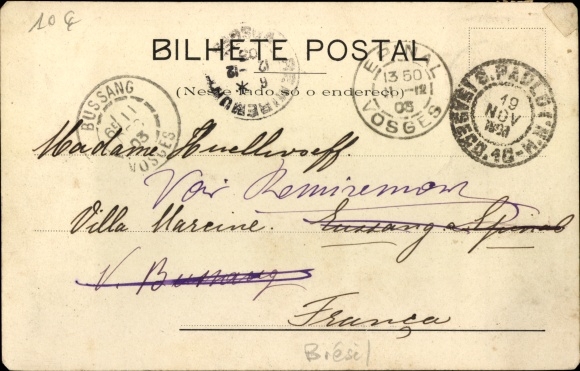 10 €
BILHETE POSTAL
(Neste lado só o endereço)
EPINAL
13 50
-12
03
VOSGES
S. PAULO
19
NOV
BUSSANG
11
03
VOSGES
REMIREMONT
12
Madame
Voir Remiremont
Villa Marcine. Bussang Epinal
V. Bussang
França
Brésil